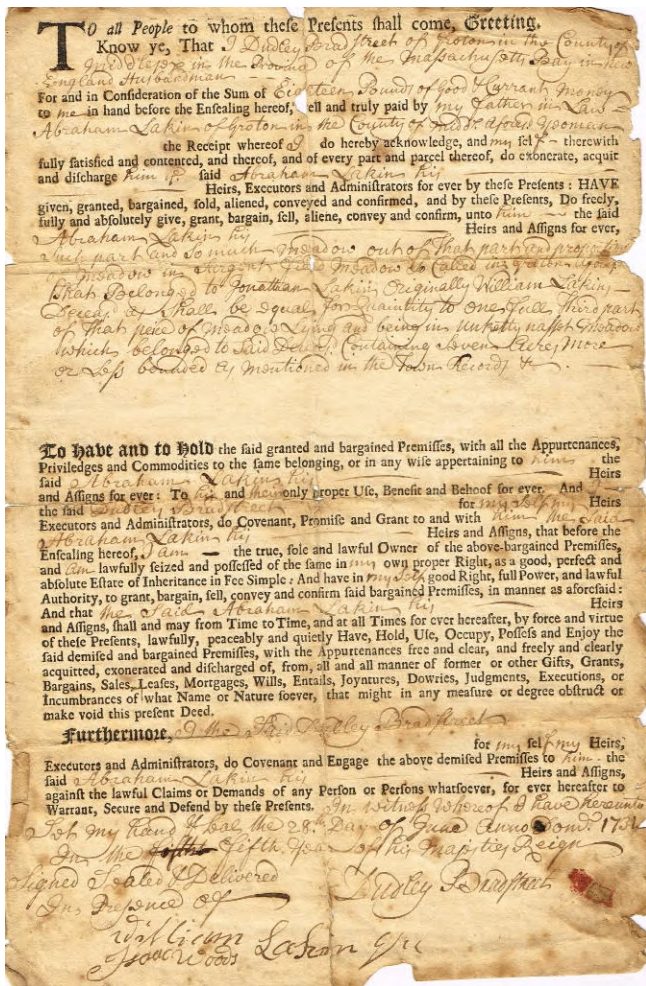 TO all People to whom these Presents shall come, Greeting.
Know ye, That I Dudley Bradstreet of Groton in the County of
Middlesex in the Province of the Massachusetts Bay in new
England Husbandman
For and in Consideration of the Sum of Eighteen Pounds of Good & Currant money
to me in hand before the Ensealing hereof, well and truly paid by my Father in Law
Abraham Lakin of Groton in the County of aforesd Yeoman
the Receipt whereof I do hereby acknowledge, and my self therewith
fully satisfied and contented, and thereof, and of every part and parcel thereof, do exonerate, acquit
and discharge him ye said Abraham Lakin his
Heirs, Executors and Administrators for ever by these Presents : HAVE
given, granted, bargained, sold, aliened, conveyed and confirmed, and by these Presents, Do freely,
fully and absolutely give, grant, bargain, sell, aliene, convey and confirm, unto him the said
Abraham Lakin his Heirs and Assigns for ever,
Such part and so much meadow out of that part and
of meadow in Meadow so Called in
that Belonged to Jonathan Lakin Originally William Lakin
as Shall be equal for Quaintity to one full third part
of that peice of meadow Lying and being in Unkettynasset Meadow
which belonged to Said Containing Seven Acres More
or Less bounded as mentioned in the Town Records &
To Have and to Hold the said granted and bargained Premisses, with all the Appurtenances,
Priviledges and Commodities to the same belonging, or in any wise appertaining to him the
said Abraham Lakin his Heirs
and Assigns for ever : To his and their only proper Use, Benefit and Behoof for ever. And I
the said Dudley Bradstreet for my Self my Heirs
Executors and Administrators, do Covenant, Promise and Grant to and with him the Said
Abraham Lakin his Heirs and Assigns, that before the
Ensealing hereof, I am the true, sole and lawful Owner of the above-bargained Premisses,
and am lawfully seized and possessed of the same in my own proper Right, as a good, perfect and
absolute Estate of Inheritance in Fee Simple : And have in my Self good Right, full Power, and lawful
Authority, to grant, bargain, sell, convey and confirm said bargained Premisses, in manner as aforesaid :
And that the Said Abraham Lakin his Heirs
and Assigns, shall and may from Time to Time, and at all Times for ever hereafter, by force and virtue
of these Presents, lawfully, peaceably and quietly Have, Hold, Use, Occupy, Possess and Enjoy the
said demised and bargained Premisses, with the Appurtenances free and clear, and freely and clearly
acquitted, exonerated and discharged of, from, all and all manner of former or other Gifts, Grants,
Bargains, Sales, Leases, Mortgages, Wills, Entails, Joyntures, Dowries, Judgments, Executions, or
Incumbrances of what Name or Nature soever, that might in any measure or degree obstruct or
make void this present Deed.
Furthermore, I the Said Dudley Bradstreet
for my self my Heirs,
Executors and Administrators, do Covenant and Engage the above demised Premisses to him the
said Abraham Lakin his Heirs and Assigns,
against the lawful Claims or Demands of any Person or Persons whatsoever, for ever hereafter to
Warrant, Secure and Defend by these Presents. In Witness Whereof I have hereunto
Set my hand & Seal the 28th Day of June Anno Domi
In the Fifth Year of his Majesties Reign
Signed Sealed & Delivered
In Presence of
Dudley Bradstreet
William Lakin
Isaac Woods